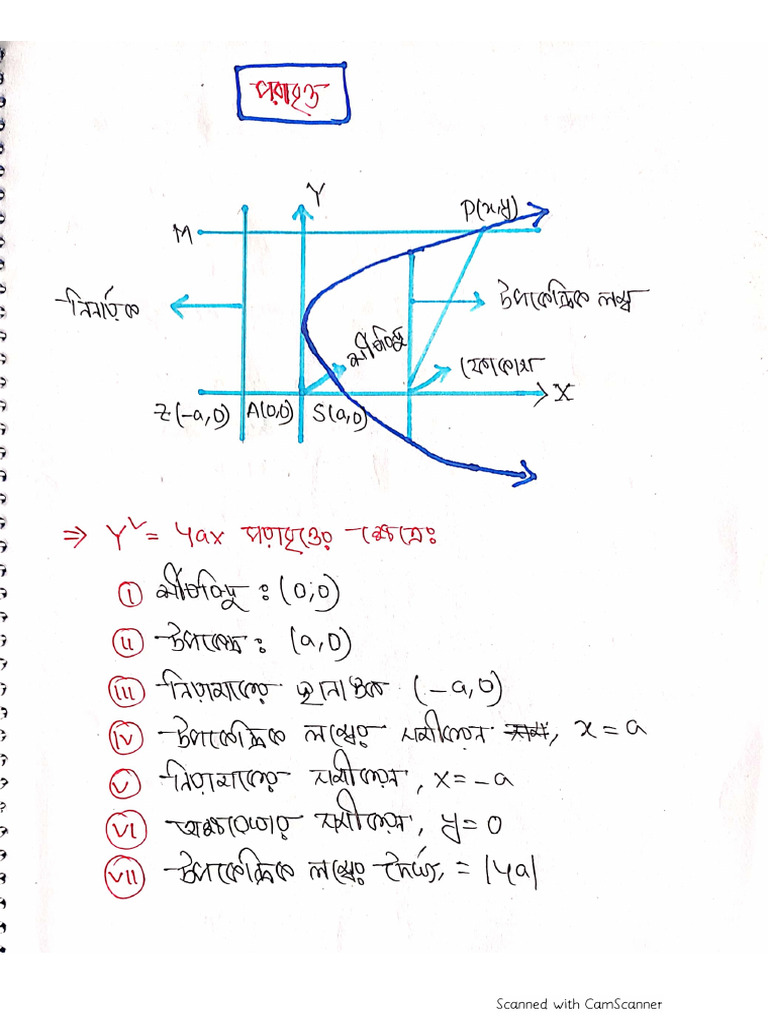 পরাবৃত্ত
Y
P(x,y)
M
নিয়ামক
উপকেন্দ্রিক লম্ব
শীর্ষবিন্দু
ফোকাস
X
Z(-a,0) A(0,0) S(a,0)
⇒ Y² = 4ax পরাবৃত্তের ক্ষেত্রেঃ
(i) শীর্ষবিন্দু : (0,0)
(ii) উপকেন্দ্র : (a,0)
(iii) নিয়ামকের স্থানাঙ্ক (-a,0)
(iv) উপকেন্দ্রিক লম্বের সমীকরণ, x = a
(v) নিয়ামকের সমীকরণ, x = -a
(vi) অক্ষরেখার সমীকরণ, y = 0
(vii) উপকেন্দ্রিক লম্বের দৈর্ঘ্য, = |4a|
Scanned with CamScanner